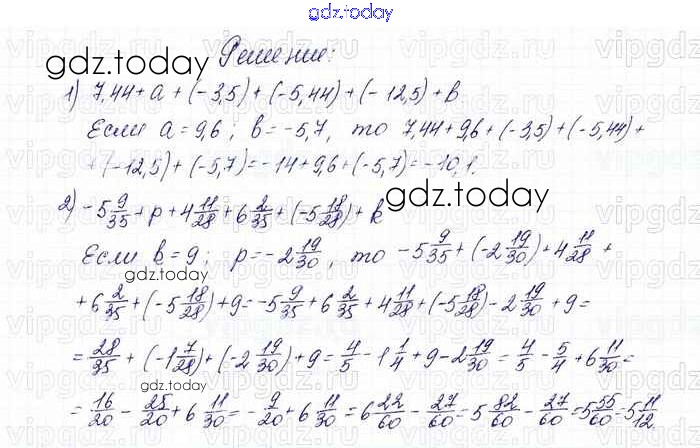 gdz.today
Решение:
1) 7,44 + a + (-3,5) + (-5,44) + (-12,5) + b
Если a = 9,6; b = -5,7, то 7,44 + 9,6 + (-3,5) + (-5,44) +
+ (-12,5) + (-5,7) = -14 + 9,6 + (-5,7) = -10,1.
2) -5 9/35 + p + 4 11/28 + 6 2/35 + (-5 18/28) + k
Если k = 9; p = -2 19/30, то -5 9/35 + (-2 19/30) + 4 11/28 +
+ 6 2/35 + (-5 18/28) + 9 = -5 9/35 + 6 2/35 + 4 11/28 + (-5 18/28) - 2 19/30 + 9 =
= 28/35 + (-1 7/28) + (-2 19/30) + 9 = 4/5 - 1 1/4 + 9 - 2 19/30 = 4/5 - 5/4 + 6 11/30 =
= 16/20 - 25/20 + 6 11/30 = -9/20 + 6 11/30 = 6 22/60 - 27/60 = 5 82/60 - 27/60 = 5 55/60 = 5 11/12
gdz.today
gdz.today
gdz.today
gdz.today